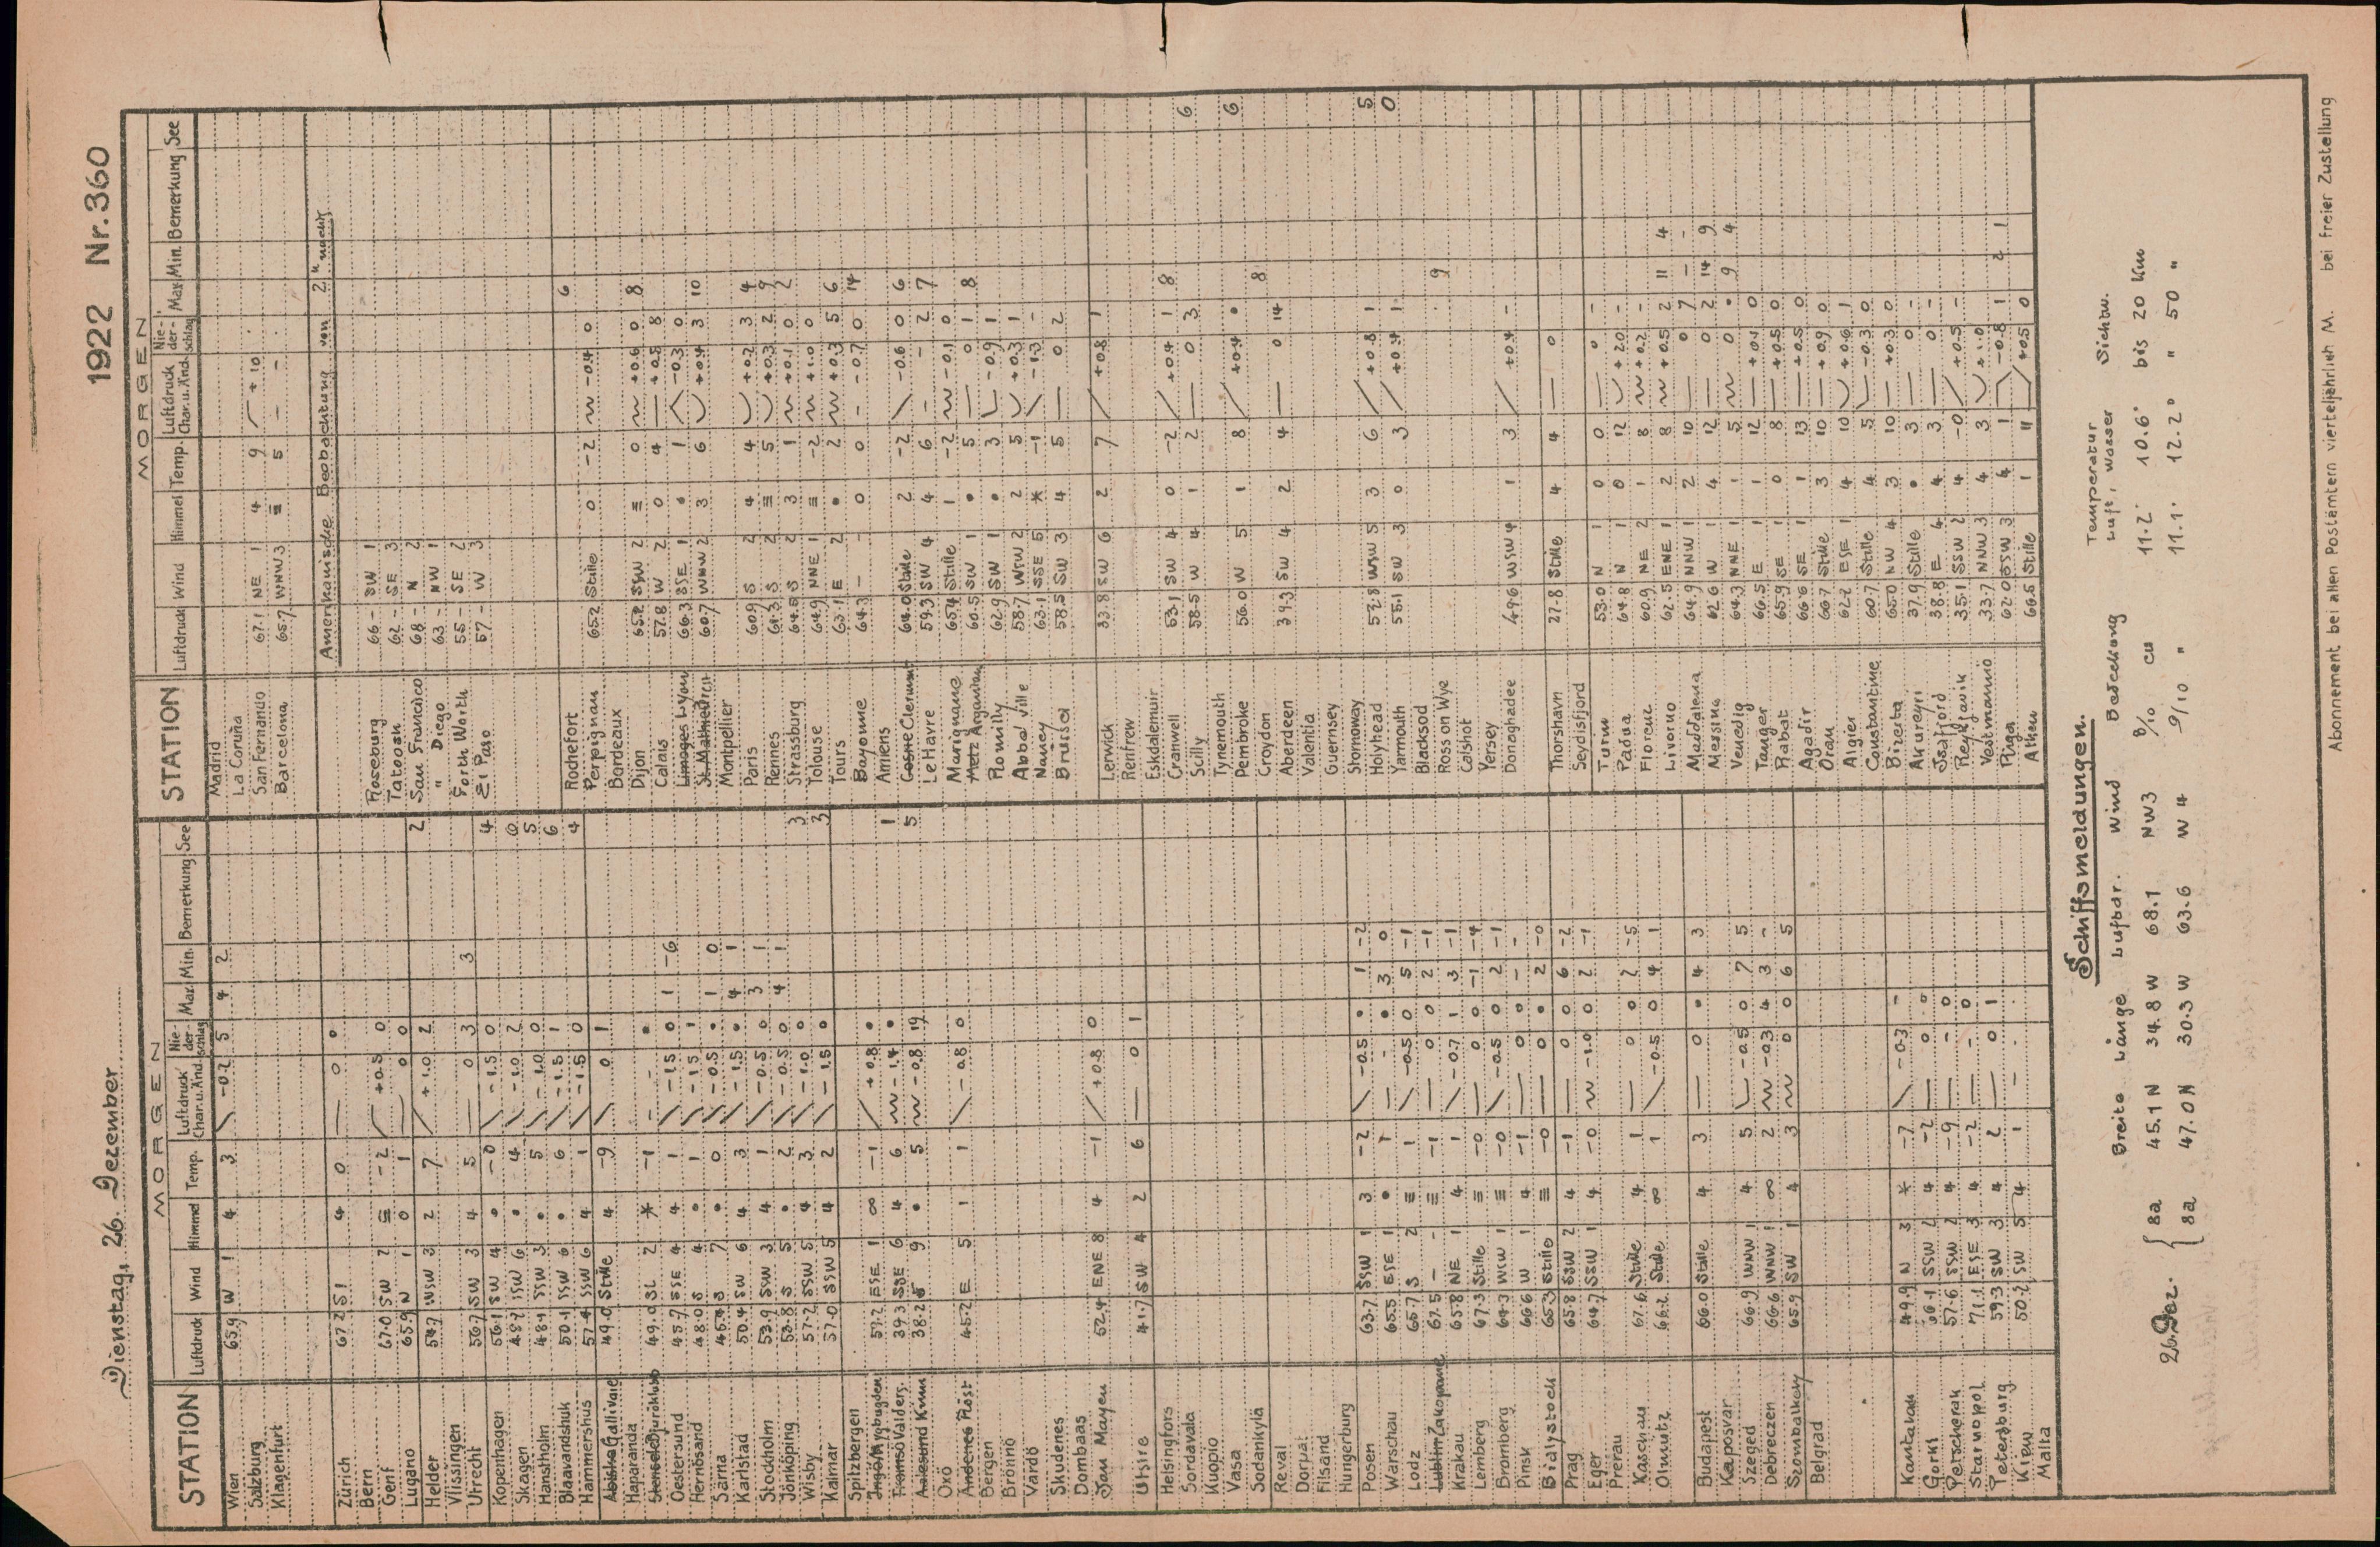 Dienstag, 26. Dezember 1922 Nr. 360
MORGEN
STATION Luftdruck Wind Himmel Temp. Luftdruck Char. u. Änd. Nie-der-schlag Max. Min. Bemerkung See
Wien 65.9 W 1 4 3 -0.2 5 4 2
Salzburg
Klagenfurt
Zürich 67.2 S 1 4 0 — 0 •
Bern
Genf 67.0 SW 2 ≡ -2 +0.5 0
Lugano 65.9 N 1 0 1 — 0 0
Helder 54.7 WSW 3 2 7 +1.0 2 2
Vlissingen
Utrecht 56.7 SW 3 4 5 — 0 3 3 4
Kopenhagen 56.1 SW 4 • -0 -1.5 0 0
Skagen 48.7 SSW 6 • 4 -1.0 2 5
Hanstholm 48.1 SSW 3 • 5 -1.0 0 6
Blaavandshuk 50.1 SSW 6 • 6 -1.5 1 4
Hammershus 57.4 SSW 6 4 1 -1.5 0
Gällivare 49.0 Stille 4 -9 0 1
Haparanda
49.0 SE 2 * -1 - - •
Oestersund 45.7 SSE 4 4 1 -1.5 0 1 -6
Hernösand 48.0 S 4 • 1 -1.5 1
Särna 45.4 S 7 • 0 -0.5 • 1 0
Karlstad 50.4 SW 6 4 3 -1.5 • 4 1
Stockholm 53.9 SSW 3 4 1 -0.5 0 3 1
Jönköping 53.8 S 5 • 2 -0.5 0 4 1
Wisby 57.2 SSW 5 4 3 -1.0 0 3
Kalmar 57.0 SSW 5 4 2 -1.5 • 3
Spitzbergen
57.2 ESE 1 ∞ -1 +0.8 •
Valders 39.3 SSE 6 4 6 -1.4 • 1
Kinn 38.2 S 9 • 5 -0.8 19 5
Oxö
Röst 45.2 E 5 1 1 -0.8 0
Bergen
Brönnö
Vardö
Skudenes
Dombaas
Jan Mayen 52.4 ENE 8 4 -1 +0.8 0
Utsire 41.7 SW 4 2 6 — 0 1
Helsingfors
Sordavala
Kuopio
Vasa
Sodankylä
Reval
Dorpat
Filsand
Hungerburg
Posen 63.7 SSW 1 3 -2 -0.5 • 1 -2
Warschau 65.5 ESE 1 • 1 — - • 3 0
Lodz 65.7 S 2 ≡ 1 -0.5 0 5 -1
Zakopane 67.5 - - ≡ -1 — 0 0 2 -1
Krakau 65.8 NE 1 4 1 -0.7 1 3 -1
Lemberg 67.3 Stille ≡ -0 — 0 0 -1 -4
Bromberg 64.3 WSW 1 ≡ -0 -0.5 0 2 -1
Pinsk 66.6 W 1 4 -1 — 0 0 - -
Bialystock 65.3 Stille ≡ -0 — 0 • 2 -0
Prag 65.8 SSW 2 4 -1 — 0 0 6 -2
Eger 64.7 SSW 1 4 -0 -1.0 0 2 -1
Prerau
Kaschau 67.6 Stille 4 1 — 0 0 2 -5
Olmutz 66.2 Stille ∞ 1 -0.5 0 4 1
Budapest 66.0 Stille 4 3 — 0 • 4 3
Kaposvar
Szeged 66.9 WNW 1 4 5 -0.5 0 7 5
Debreczen 66.6 WNW 1 ∞ 2 -0.3 4 3 -
Szombathely 65.9 SW 1 4 3 0 0 6 5
Belgrad
49.9 N 3 * -7 -0.3 -
Gorki 66.1 SSW 2 4 -2 — 0 0
Petscherak 57.6 SSW 2 4 -9 — - 0
Starnopol 71.1 ESE 3 4 -2 — - 0
Petersburg 59.3 SW 3 4 2 — 0 1
Kiew 50.2 SW 5 4 1 - -
Malta
MORGEN
STATION Luftdruck Wind Himmel Temp. Luftdruck Char. u. Änd. Nie-der-schlag Max. Min. Bemerkung See
Madrid
La Coruña
San Fernando 67.1 NE 1 4 9 +1.0 ·
Barcelona 65.7 WNW 3 ≡ 5 - - -
Amerikanische Beobachtung von 2h nachts
Roseburg 66.- SW 1
Tatoosh 62.- SE 3
San Francisco 68.- N 2
" Diego 63.- NW 1
Forth Worth 55.- SE 2
El Paso 57.- W 3
Rochefort 6
Perpignan 65.2 Stille 0 -2 -0.4 0
Bordeaux
Dijon 65.2 SSW 2 ≡ 0 +0.6 0 8
Calais 57.8 W 2 0 4 +0.5 8
Lyon 66.3 SSE 1 • 1 -0.3 0
60.7 WNW 2 3 6 +0.4 3 10
Montpellier
Paris 60.9 S 2 4 4 +0.2 3 4
Rennes 61.3 S 2 ≡ 5 +0.3 2 9
Strassburg 64.5 S 2 3 1 +0.1 0 2
Tolouse 64.9 NNE 1 ≡ -2 +1.0 0
Tours 63.1 E 2 • 2 +0.3 5 6
Bayonne 64.3 - - 0 0 - -0.7 0 14
Amiens
Clermont 64.0 Stille 2 -2 -0.6 0 6
Le Havre 59.3 SW 4 4 6 - - 2 7
Marignane 65.4 Stille 1 -2 -0.1 0
Argentan 60.5 SW 1 • 5 — 0 1 8
Romilly 62.9 SW 1 • 3 -0.9 1
Abbeville 58.7 WSW 2 2 5 +0.3 1
Nancy 63.1 SSE 5 * -1 -1.3 -
Brüssel 58.5 SW 3 4 5 — 0 2
Lerwick 33.8 SW 6 2 7 +0.8 1
Renfrew
Eskdalemuir 8
Cranwell 53.1 SW 4 0 -2 +0.4 1
Scilly 58.5 W 4 1 2 — 0 3 6
Tynemouth
Pembroke 56.0 W 5 1 8 +0.4 • 6
Croydon 8
Aberdeen 39.3 SW 4 2 4 — 0 14
Valentia
Guernsey
Stornoway
Holyhead 52.8 WSW 5 3 6 +0.8 1 5
Yarmouth 55.1 SW 3 0 3 +0.4 1 0
Blacksod
Ross on Wye 9
Calshot
Yersey
Donaghadee 49.6 WSW 4 1 3 +0.4 -
Thorshavn 27.8 Stille 4 4 — 0
Seydisfjord
Turin 53.0 N 1 0 0 — 0 -
Padua 64.8 N 1 0 12 +2.0 -
Florenz 60.9 NE 2 1 8 +0.2 -
Livorno 62.5 ENE 1 2 8 +0.5 2 11 4
Maddalena 64.9 NNW 1 2 10 — 0 7 - -
Messina 62.6 W 1 4 12 — 0 2 14 9
Venedig 64.3 NNE 1 1 5 0 • 9 4
Tanger 66.5 E 1 1 12 +0.1 0
Rabat 65.9 SE 1 0 8 +0.5 0
Agadir 66.6 SE 1 1 13 +0.5 0
Oran 66.7 Stille 3 10 +0.9 0
Algier 62.2 ESE 1 4 10 +0.6 1
Constantine 60.7 Stille 4 5 -0.3 0
Bizerta 65.0 NW 4 3 10 +0.3 0
Akureyri 37.9 Stille • 3 — 0 -
Isafjord 38.8 E 4 4 3 — 0 -
Reykjavik 35.1 SSW 2 4 -0 +0.5 -
33.7 NNW 3 4 3 +1.0
Riga 62.0 SSW 3 4 1 -0.8 1 2 1
Athen 66.5 Stille 1 11 +0.5 0
Schiffsmeldungen.
Breite Länge Luftdr. Wind Bedeckung Temperatur Luft, Wasser Sichtw.
26. Dez. { 8a 45.1 N 34.8 W 68.1 NW3 8/10 cu 11.2° 10.6° bis 20 Km
8a 47.0 N 30.3 W 63.6 W 4 9/10 " 11.1° 12.2° " 50 "
Abonnement bei allen Postämtern vierteljährlich M. bei freier Zustellung